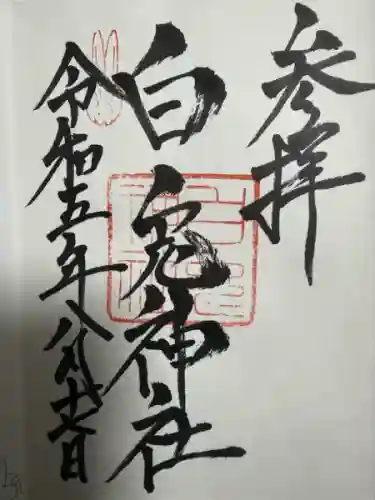 参拝
白兎神社
令和五年八月十七日